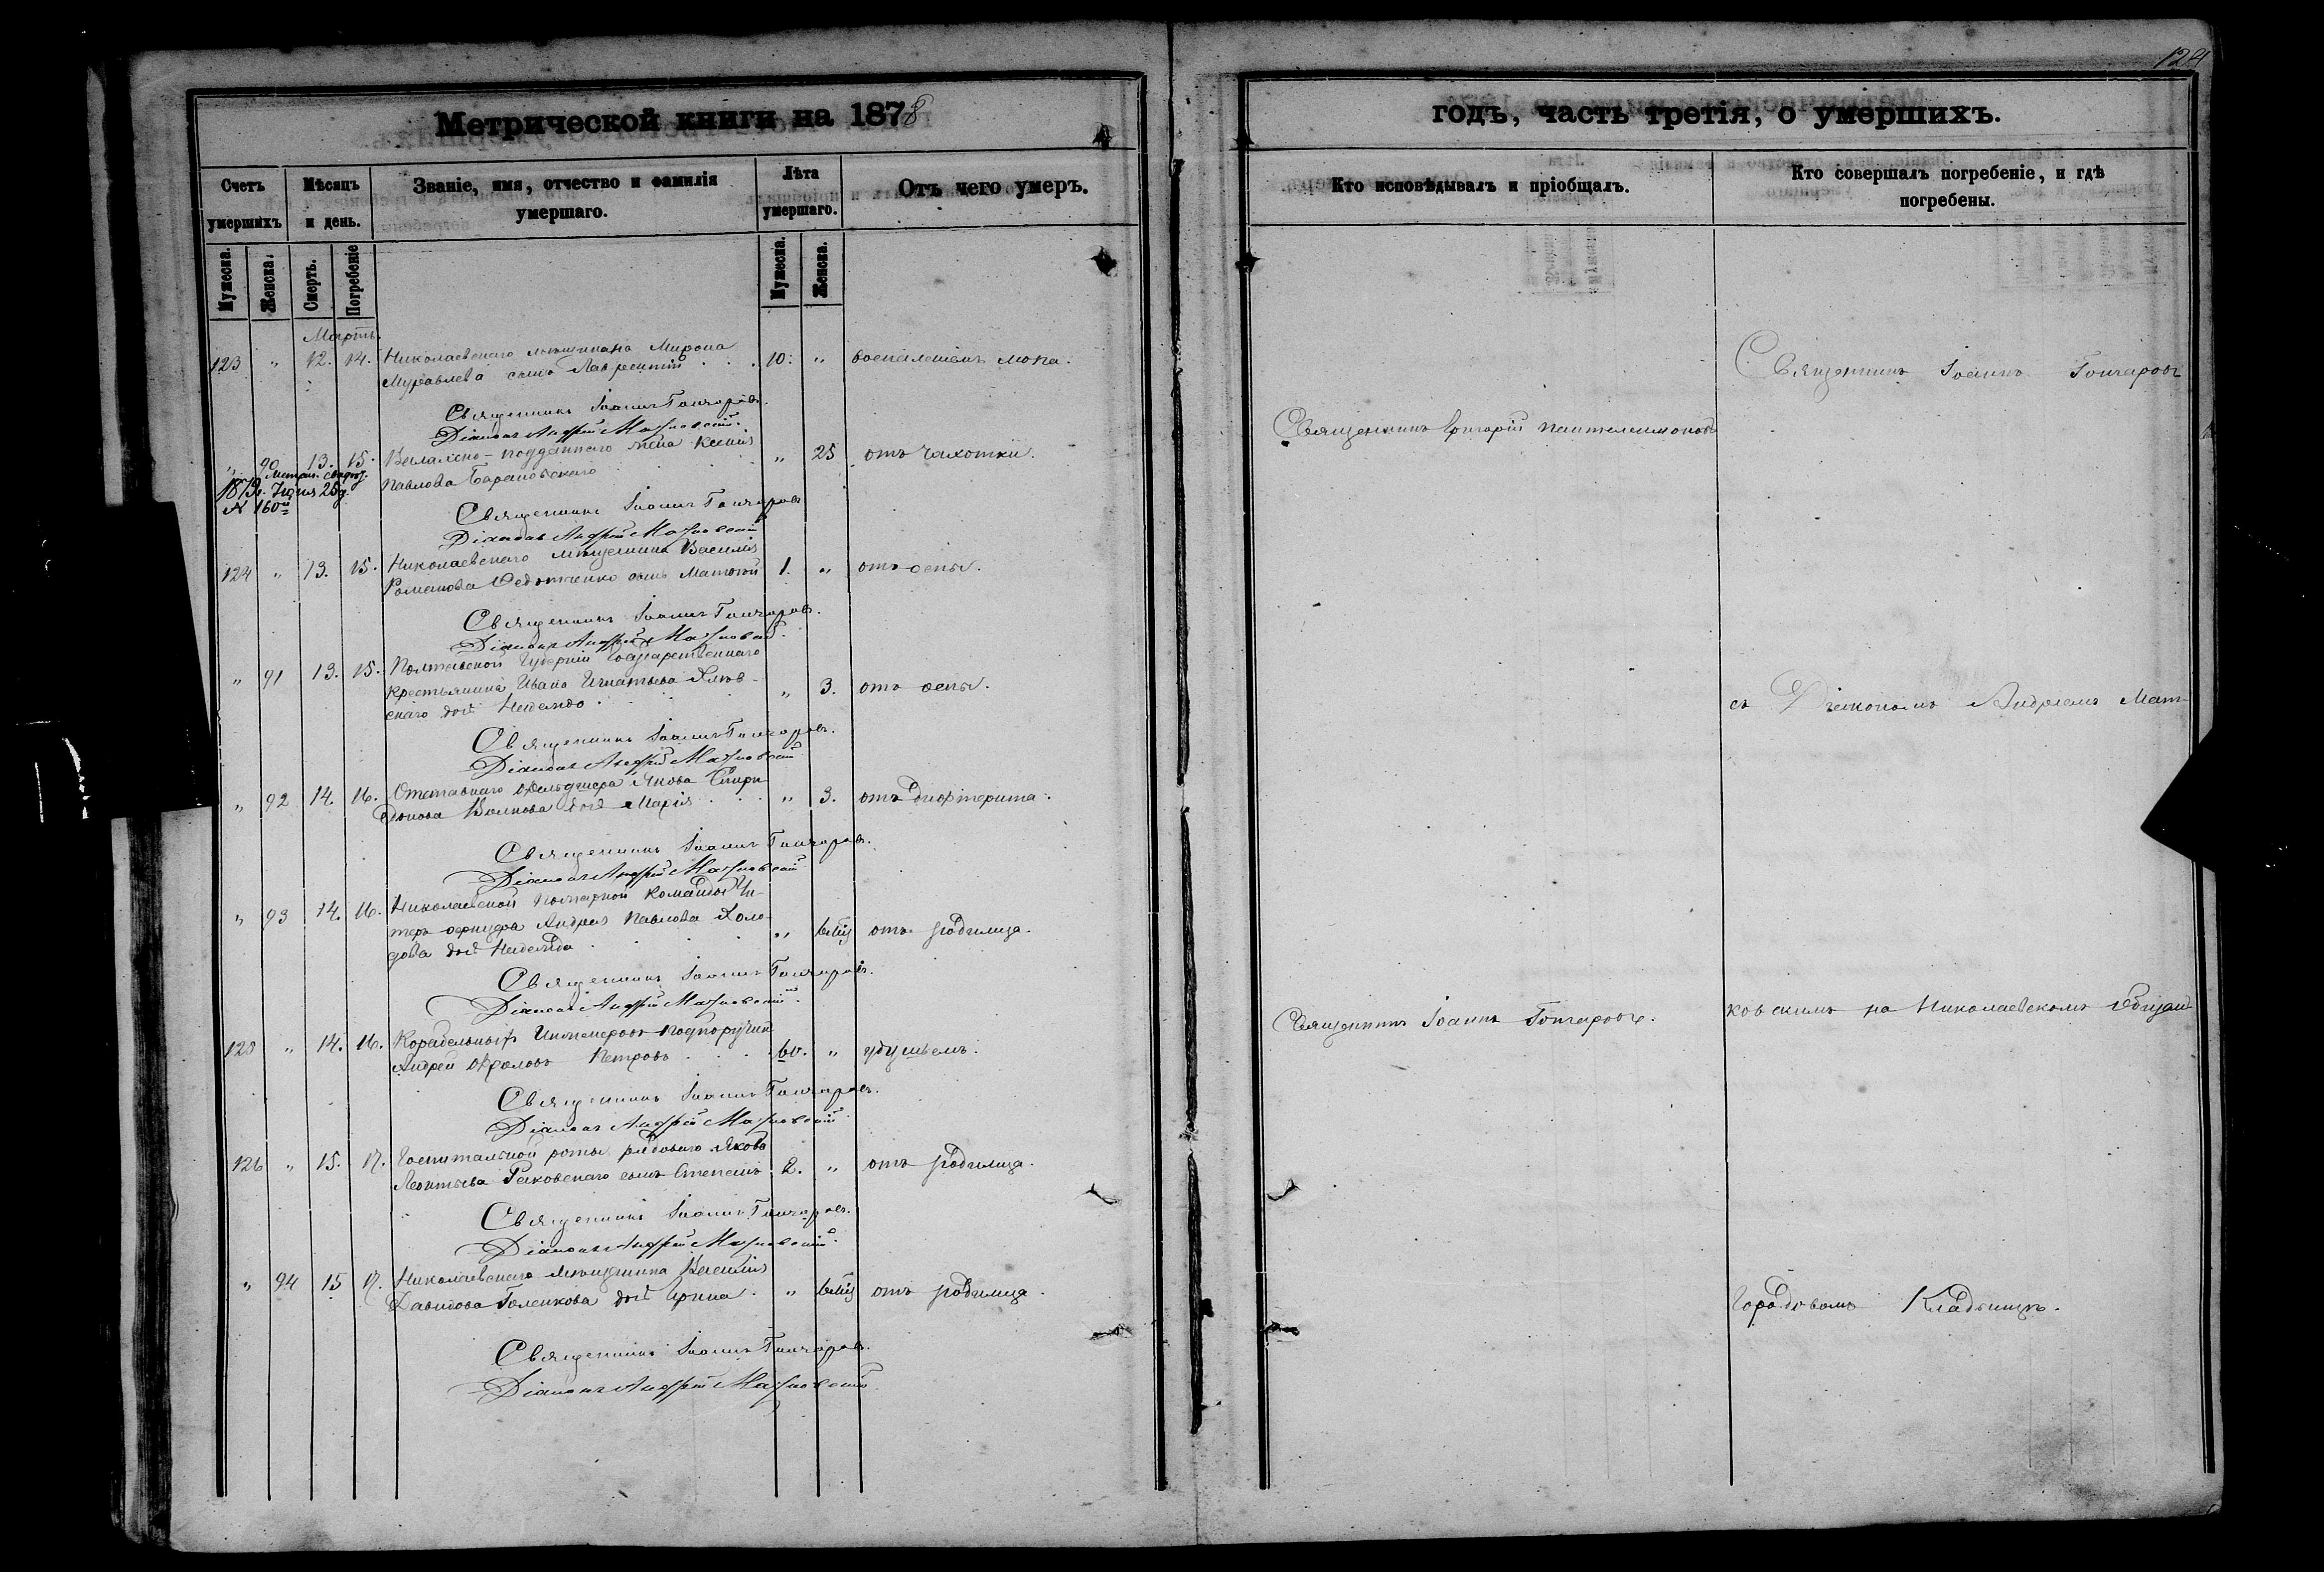 124
Метрической книги на 1878
годъ, часть третія, о умершихъ.
Счетъ умершихъ
Мѣсяцъ и день.
Званіе, имя, отчество и фамилія умершаго.
Лѣта умершаго.
Отъ чего умеръ.
Кто исповѣдывалъ и пріобщалъ.
Кто совершалъ погребеніе, и гдѣ погребены.
Мужеска.
Женска.
Смерть.
Погребеніе
Мужеска.
Женска.
Мартъ.
123 " 12. 14. Николаевскаго мѣщанина Мирона 10. " воспаленіемъ мозга.
Муравлева сынъ Лаврентій
Священникъ Іоаннъ Гончаровъ.
Діаконъ Андрей
" 90 13. 15. подданнаго жена Ксенія " 25 отъ чахотки.
1879. Іюня 25 д.
Павлова Барановскаго
№ 160
Священникъ Іоаннъ Гончаровъ
Діаконъ Андрей
124 " 13. 15. Николаевскаго мѣщанина Василія 1. " отъ оспы.
Романова сынъ
Священникъ Іоаннъ Гончаровъ.
Діаконъ Андрей
" 91 13. 15. Полтавской Губерніи Государственнаго
крестьянина Ивана Игнатьева " 3. отъ оспы.
скаго дочь Надежда
Священникъ Іоаннъ Гончаровъ.
Діаконъ Андрей
" 92 14. 16. Отставнаго Якова Спири- " 3. отъ дифтерита.
донова Волкова дочь Марія
Священникъ Іоаннъ Гончаровъ.
Діаконъ Андрей
" 93 14. 16. Николаевской пожарной команды Ун-
теръ-офицера Андрея Павлова Холо- " отъ родимца.
дова дочь Надежда
Священникъ Іоаннъ Гончаровъ.
Діаконъ Андрей
125 " 14. 16. Корабельныхъ Инженеровъ подпоручикъ
Андрей Фроловъ Петровъ 60. " удушьемъ.
Священникъ Іоаннъ Гончаровъ.
Діаконъ Андрей
126 " 15. 17. Госпитальной роты рядоваго Якова
Леонтьева сынъ Степанъ 2. " отъ родимца.
Священникъ Іоаннъ Гончаровъ.
Діаконъ Андрей
" 94 15 17. Николаевскаго мѣщанина Василія
Давидова Голенкова дочь Ирина " отъ родимца.
Священникъ Іоаннъ Гончаровъ.
Діаконъ Андрей
Священникъ Григорій Пантелеимоновъ
Священникъ Іоаннъ Гончаровъ.
Священникъ Іоаннъ Гончаровъ
съ Діакономъ Андреемъ
ковскимъ на Николаевскомъ
Городовомъ Кладбищѣ.